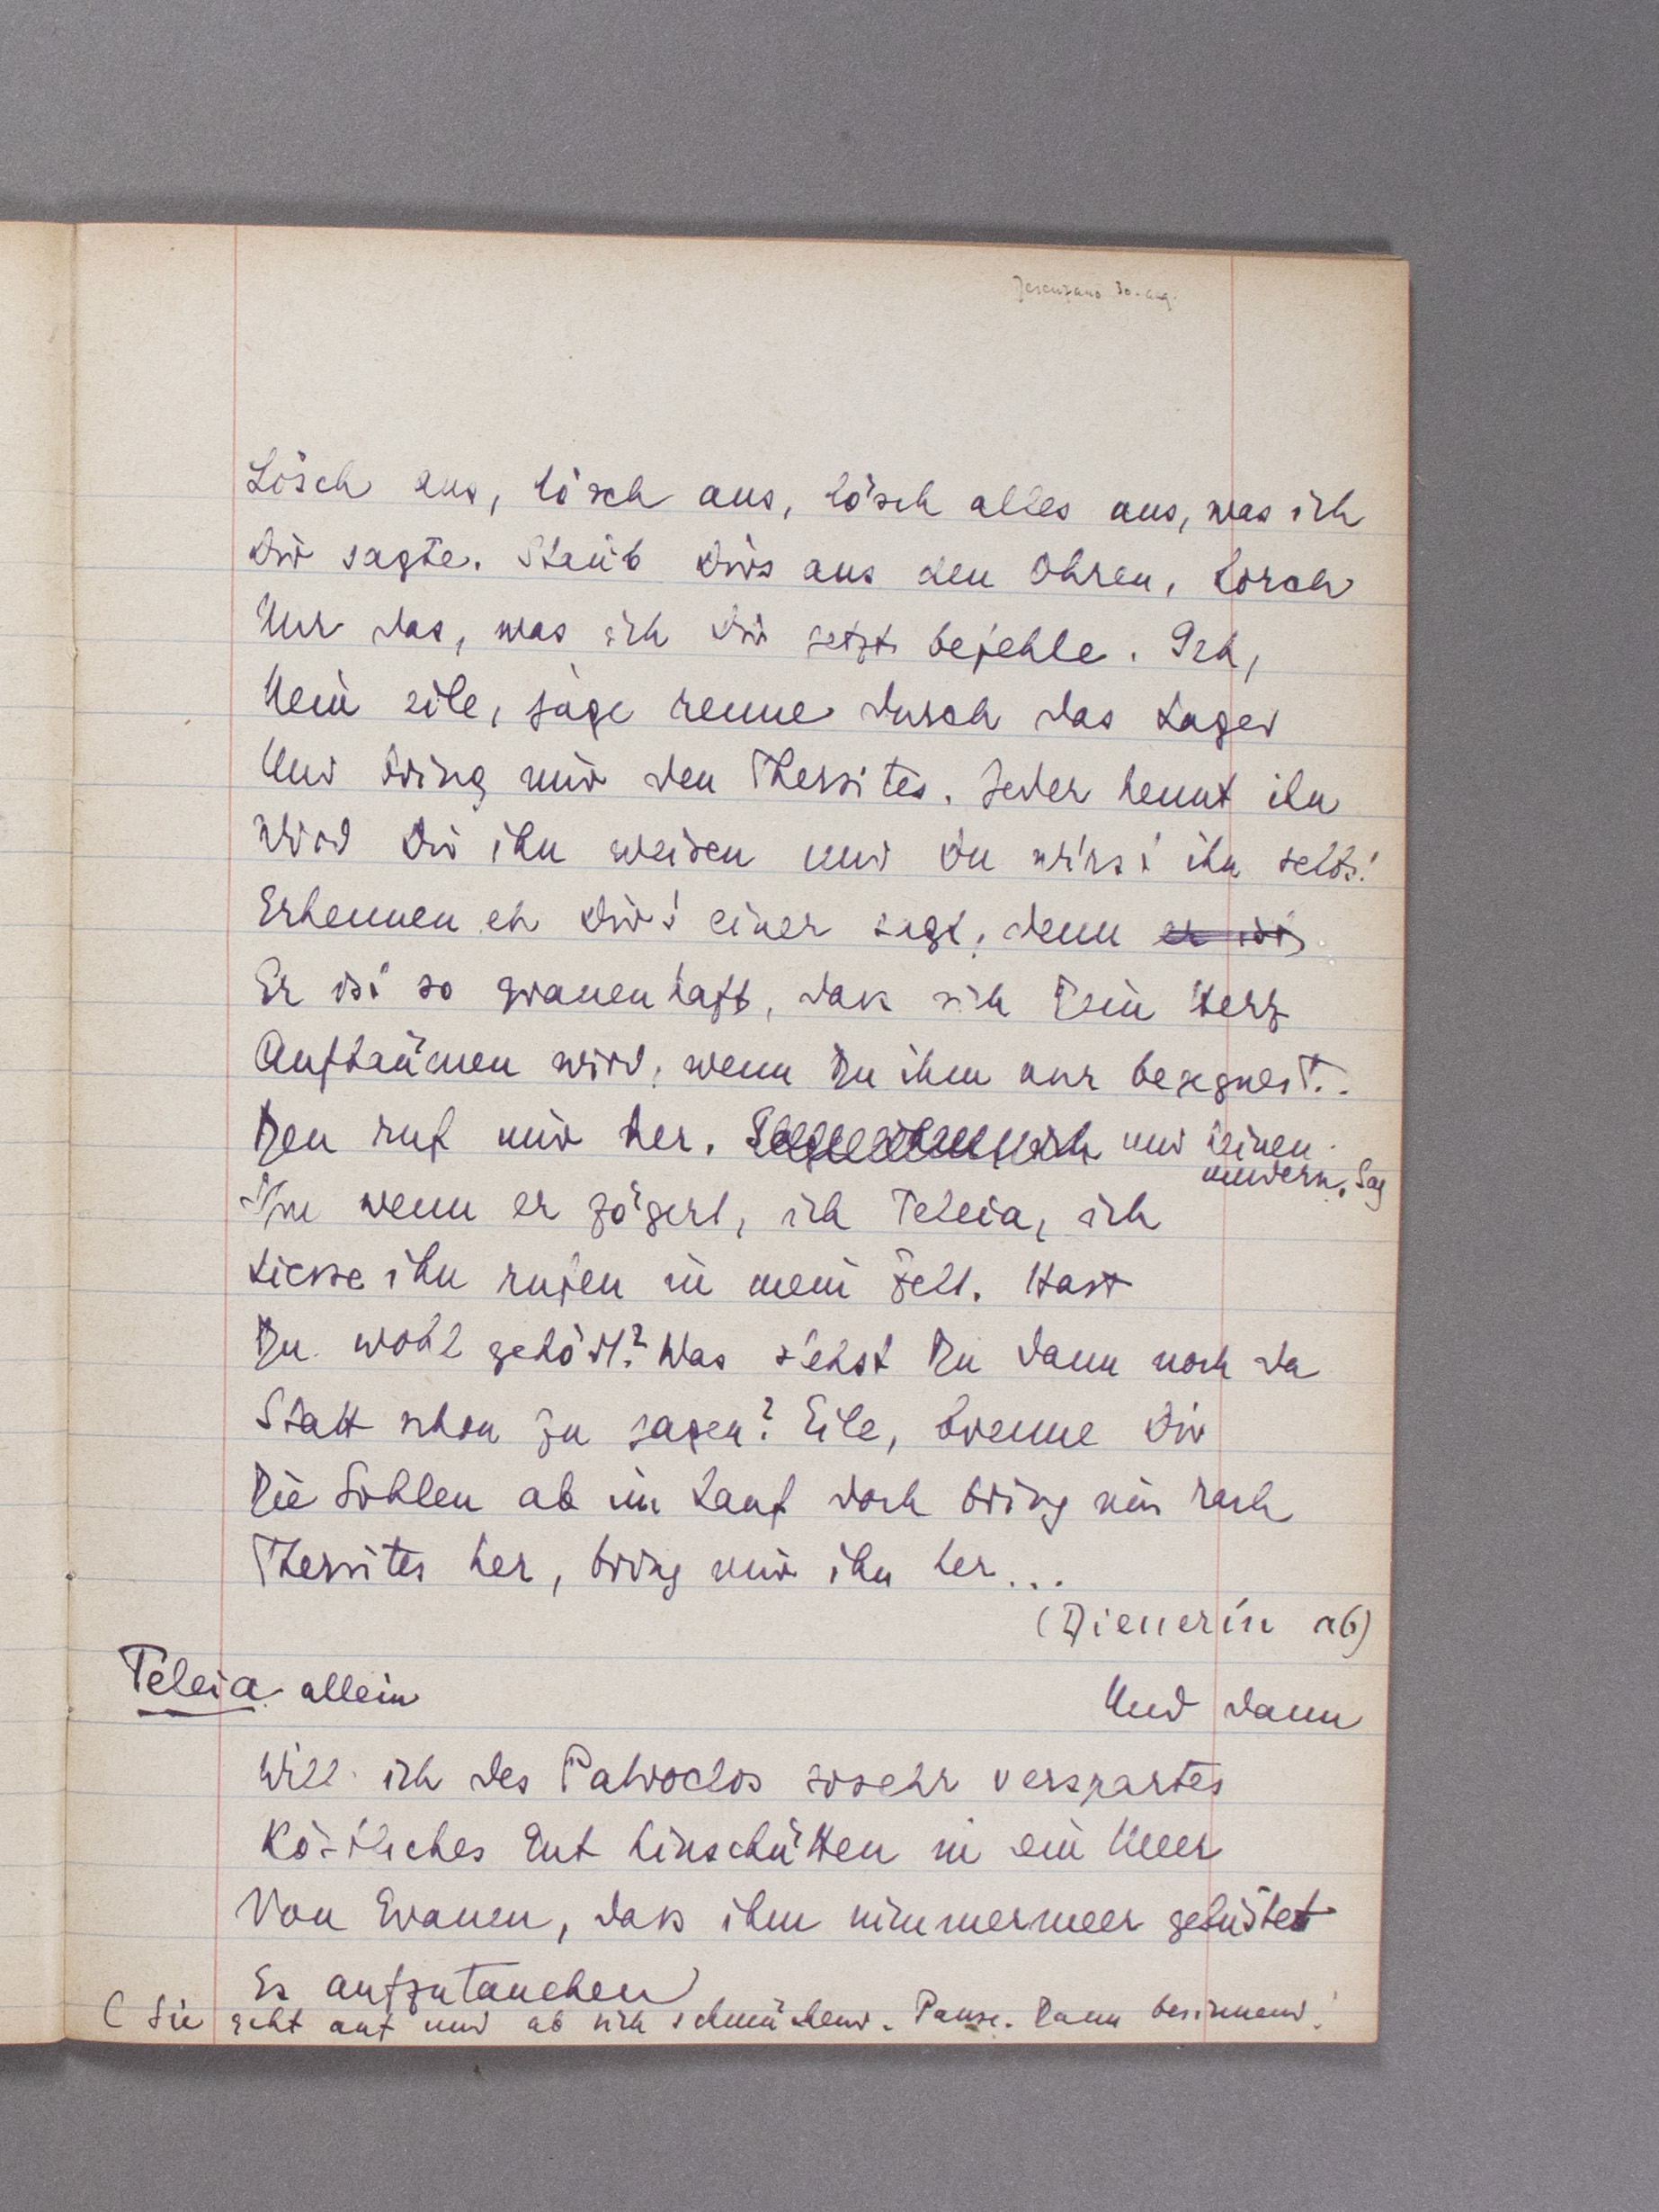 Desenzano 30. Aug.
Lösch aus, lösch aus, lösch alles aus, was ich
Dir sagte. Staub dirs aus den Ohren, horch
Nur das, was ich dir jetzt befehle. Geh,
Nein eile, jage renne durch das Lager
Und bring mir den Thersites. Jeder kennt ihn
Wird dir ihn weisen und du wirst ihn selbst
Erkennen eh dirs einer sagt, denn er ist
Er ist so grauenhaft, dass sich Dein Herz
Aufbäumen wird, wenn Du ihm nur begegnest.
Den ruf mir her. und keinen
andern. Sag
Ihm wenn er zögert, ich Teleia, ich
Liesse ihn rufen in mein Zelt. Hast
Du wohl gehört? Was stehst Du dann noch da
Statt schon zu jagen? Eile, brenne dir
Die Sohlen ab im Lauf doch bring mir rasch
Thersites her, bring mir ihn her...
(Dienerin ab)
Teleia allein
Und dann
Will ich des Patroclos sosehr verspartes
Köstliches Gut hinschütten in ein Meer
Von Grauen, dass ihm nimmermeer gelüstet
Es aufzutauchen
(Sie geht auf und ab sich schmückend. Pause. Dann besinnend: